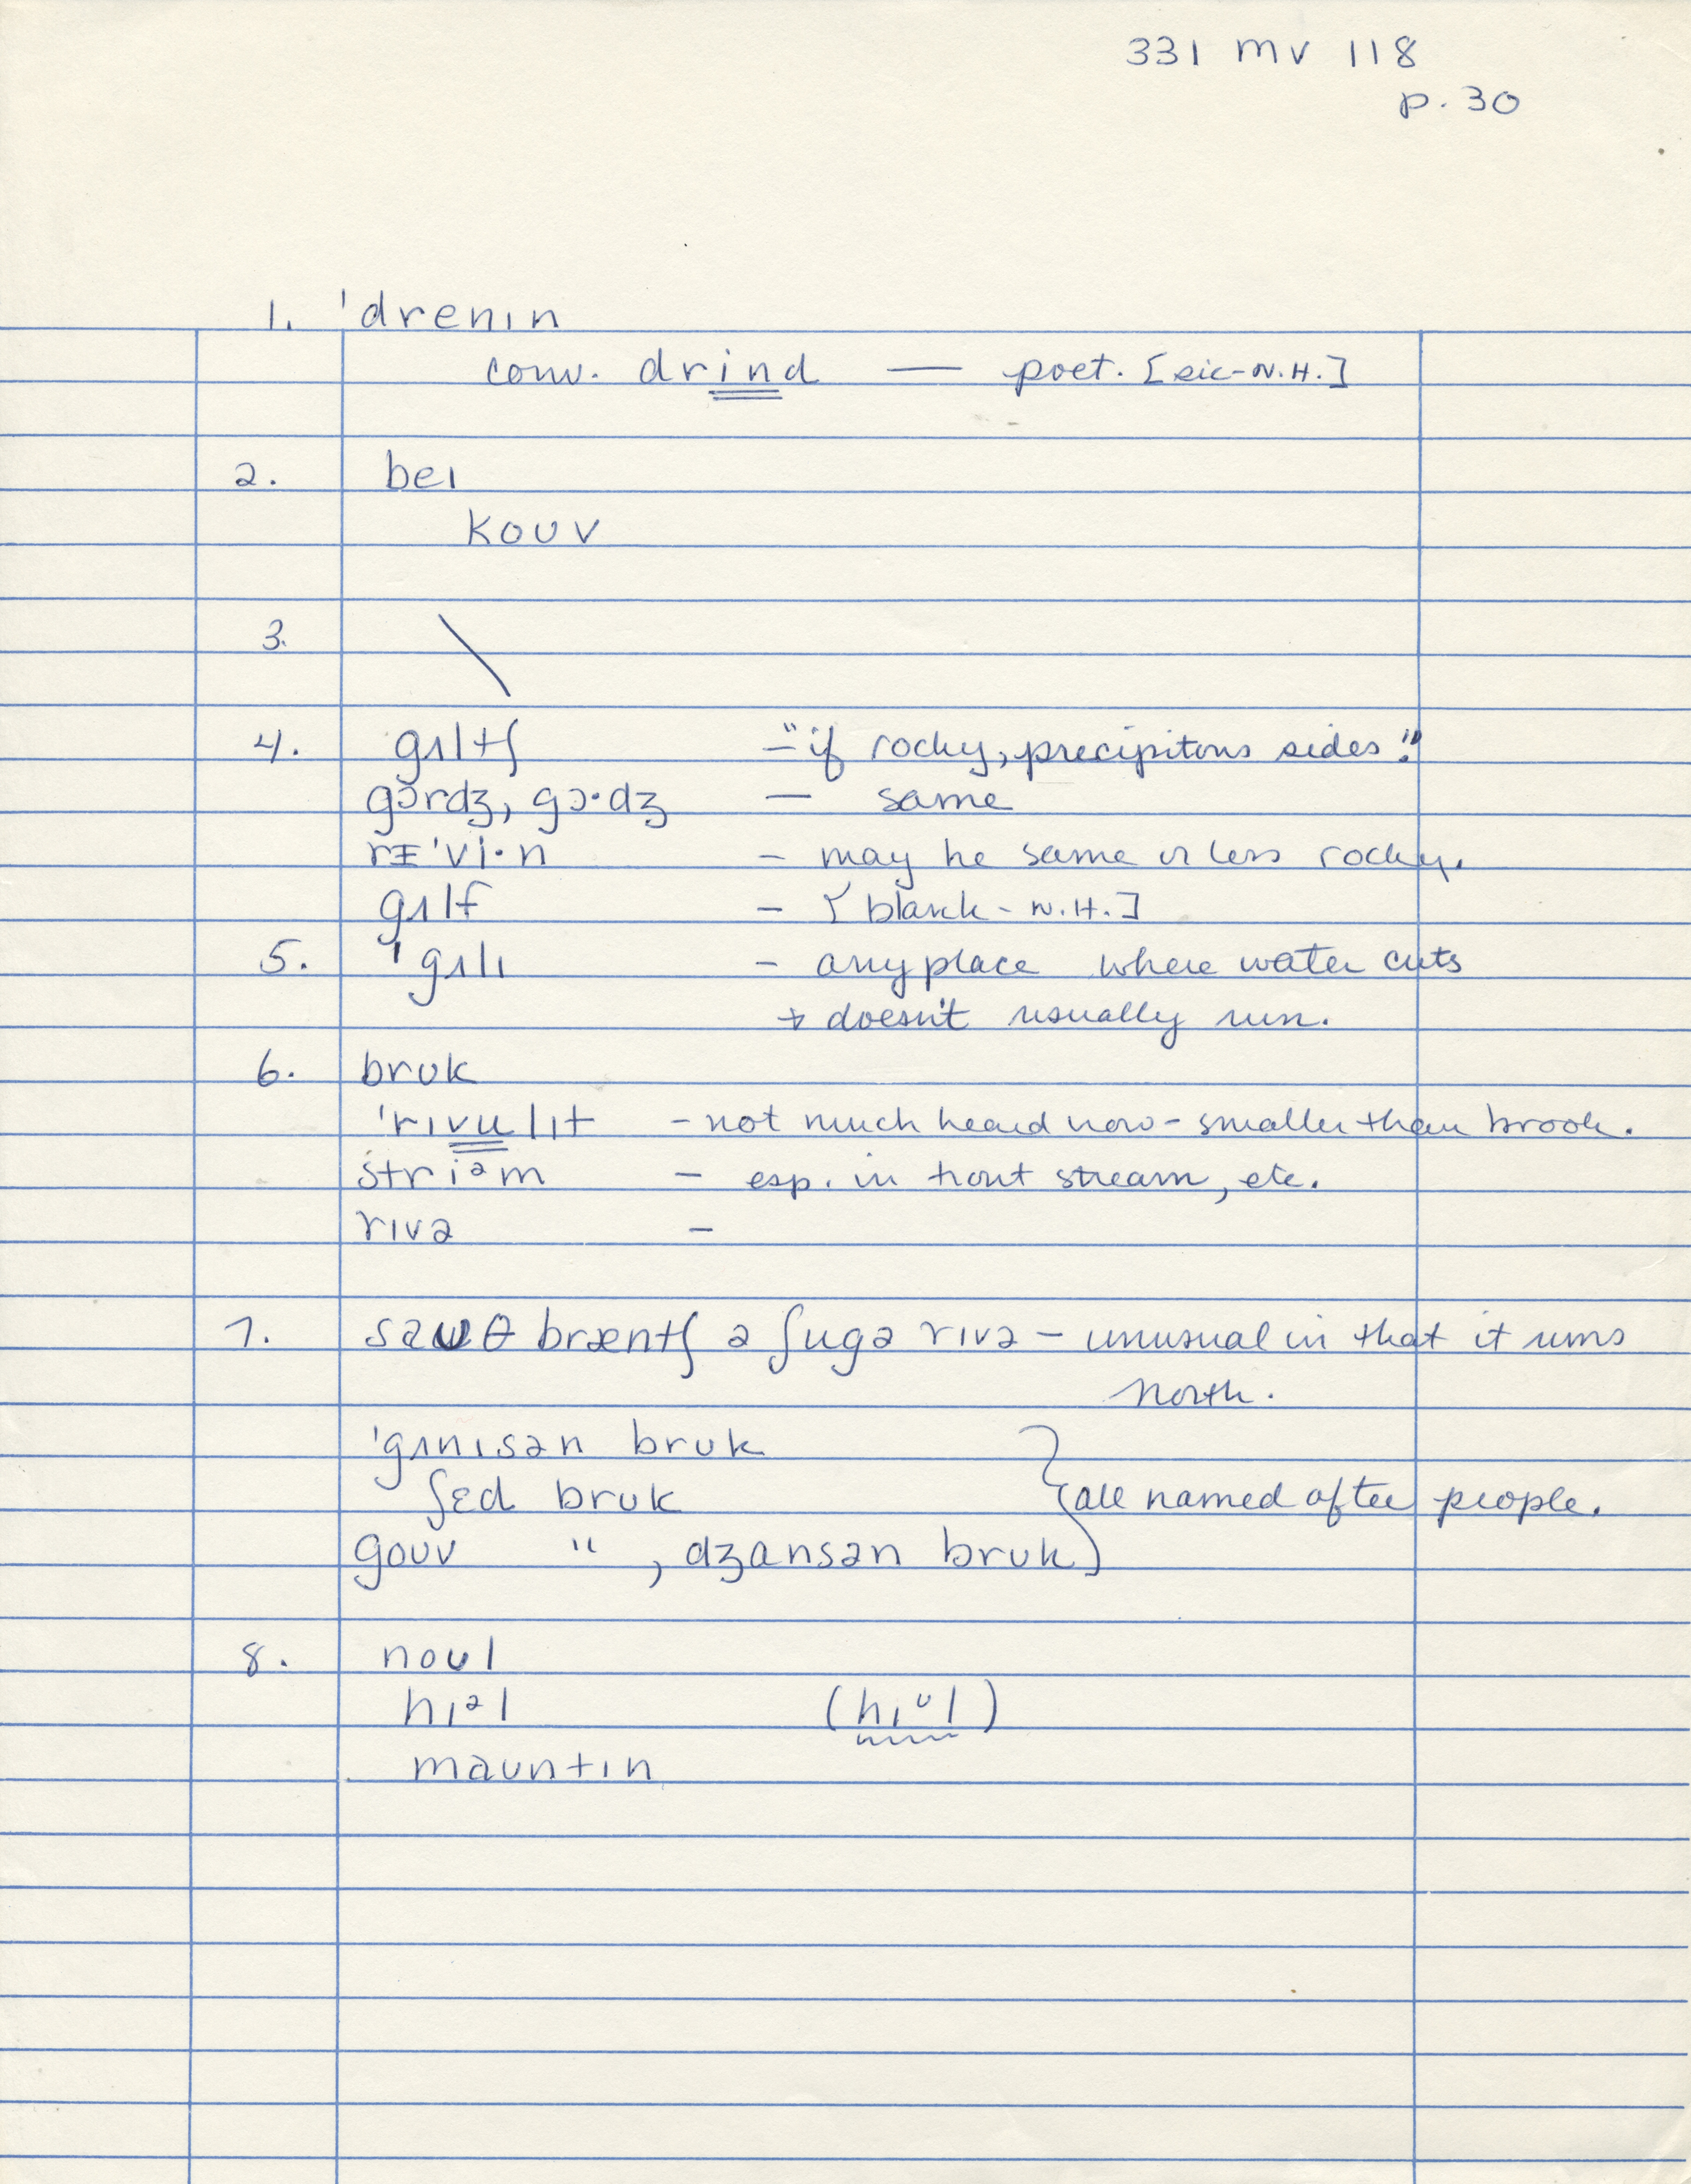 331 MV 118
p. 30
1. 'drenɪn
conv. drind — poet. [sic-N.H.]
2. beɪ
koʊv
3. \
4. gʌltʃ - "if rocky, precipitous sides."
gɔrdʒ, gɔ·dʒ — same
rᵻ'vi·n - may be same or less rocky.
gʌlf - [blank - N.H.]
5. 'gʌlɪ - any place where water cuts
+ doesn't usually run.
6. brʊk
'rɪvulɪt - not much heard now - smaller than brook.
striᵊm - esp. in trout stream, etc.
rɪvə -
7. saʊθ bræntʃ ə ʃugə rɪvə - unusual in that it runs
north.
'gʌnɪsən brʊk
ʃɛd brʊk } all named after people.
goʊv " , dʒansən brʊk
8. noʊl
hɪᵊl (hɪᶷl)
maʊntɪn